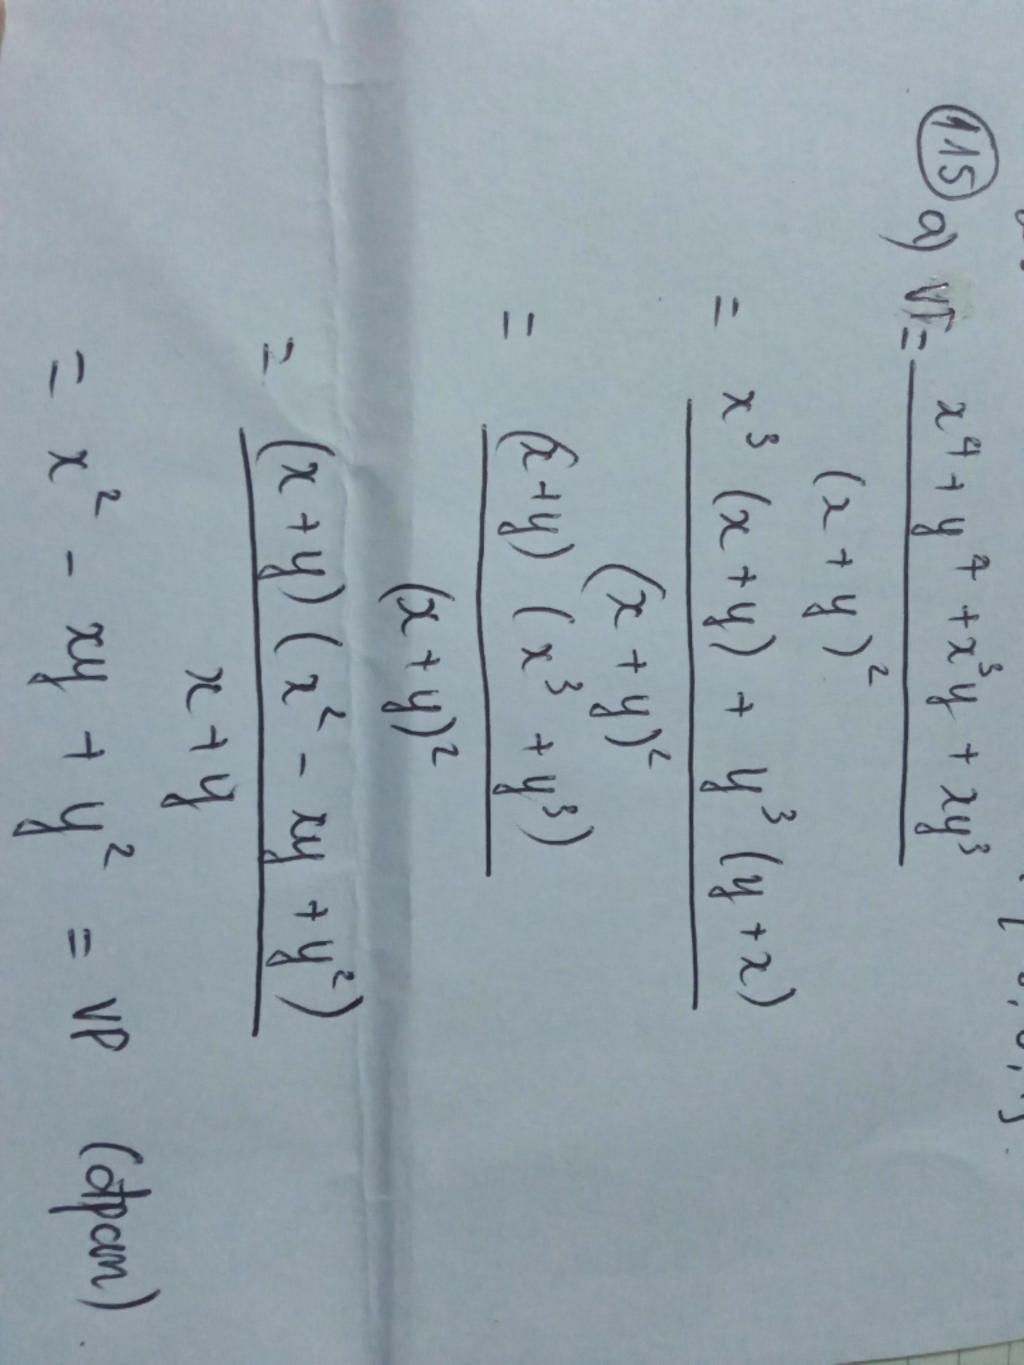 115 a) VT = x⁴ + y⁴ + x³y + xy³
(x + y)²
= x³ (x + y) + y³ (y + x)
(x + y)²
= (x + y) (x³ + y³)
(x + y)²
= (x + y) (x² - xy + y²)
x + y
= x² - xy + y² = VP (đpcm)